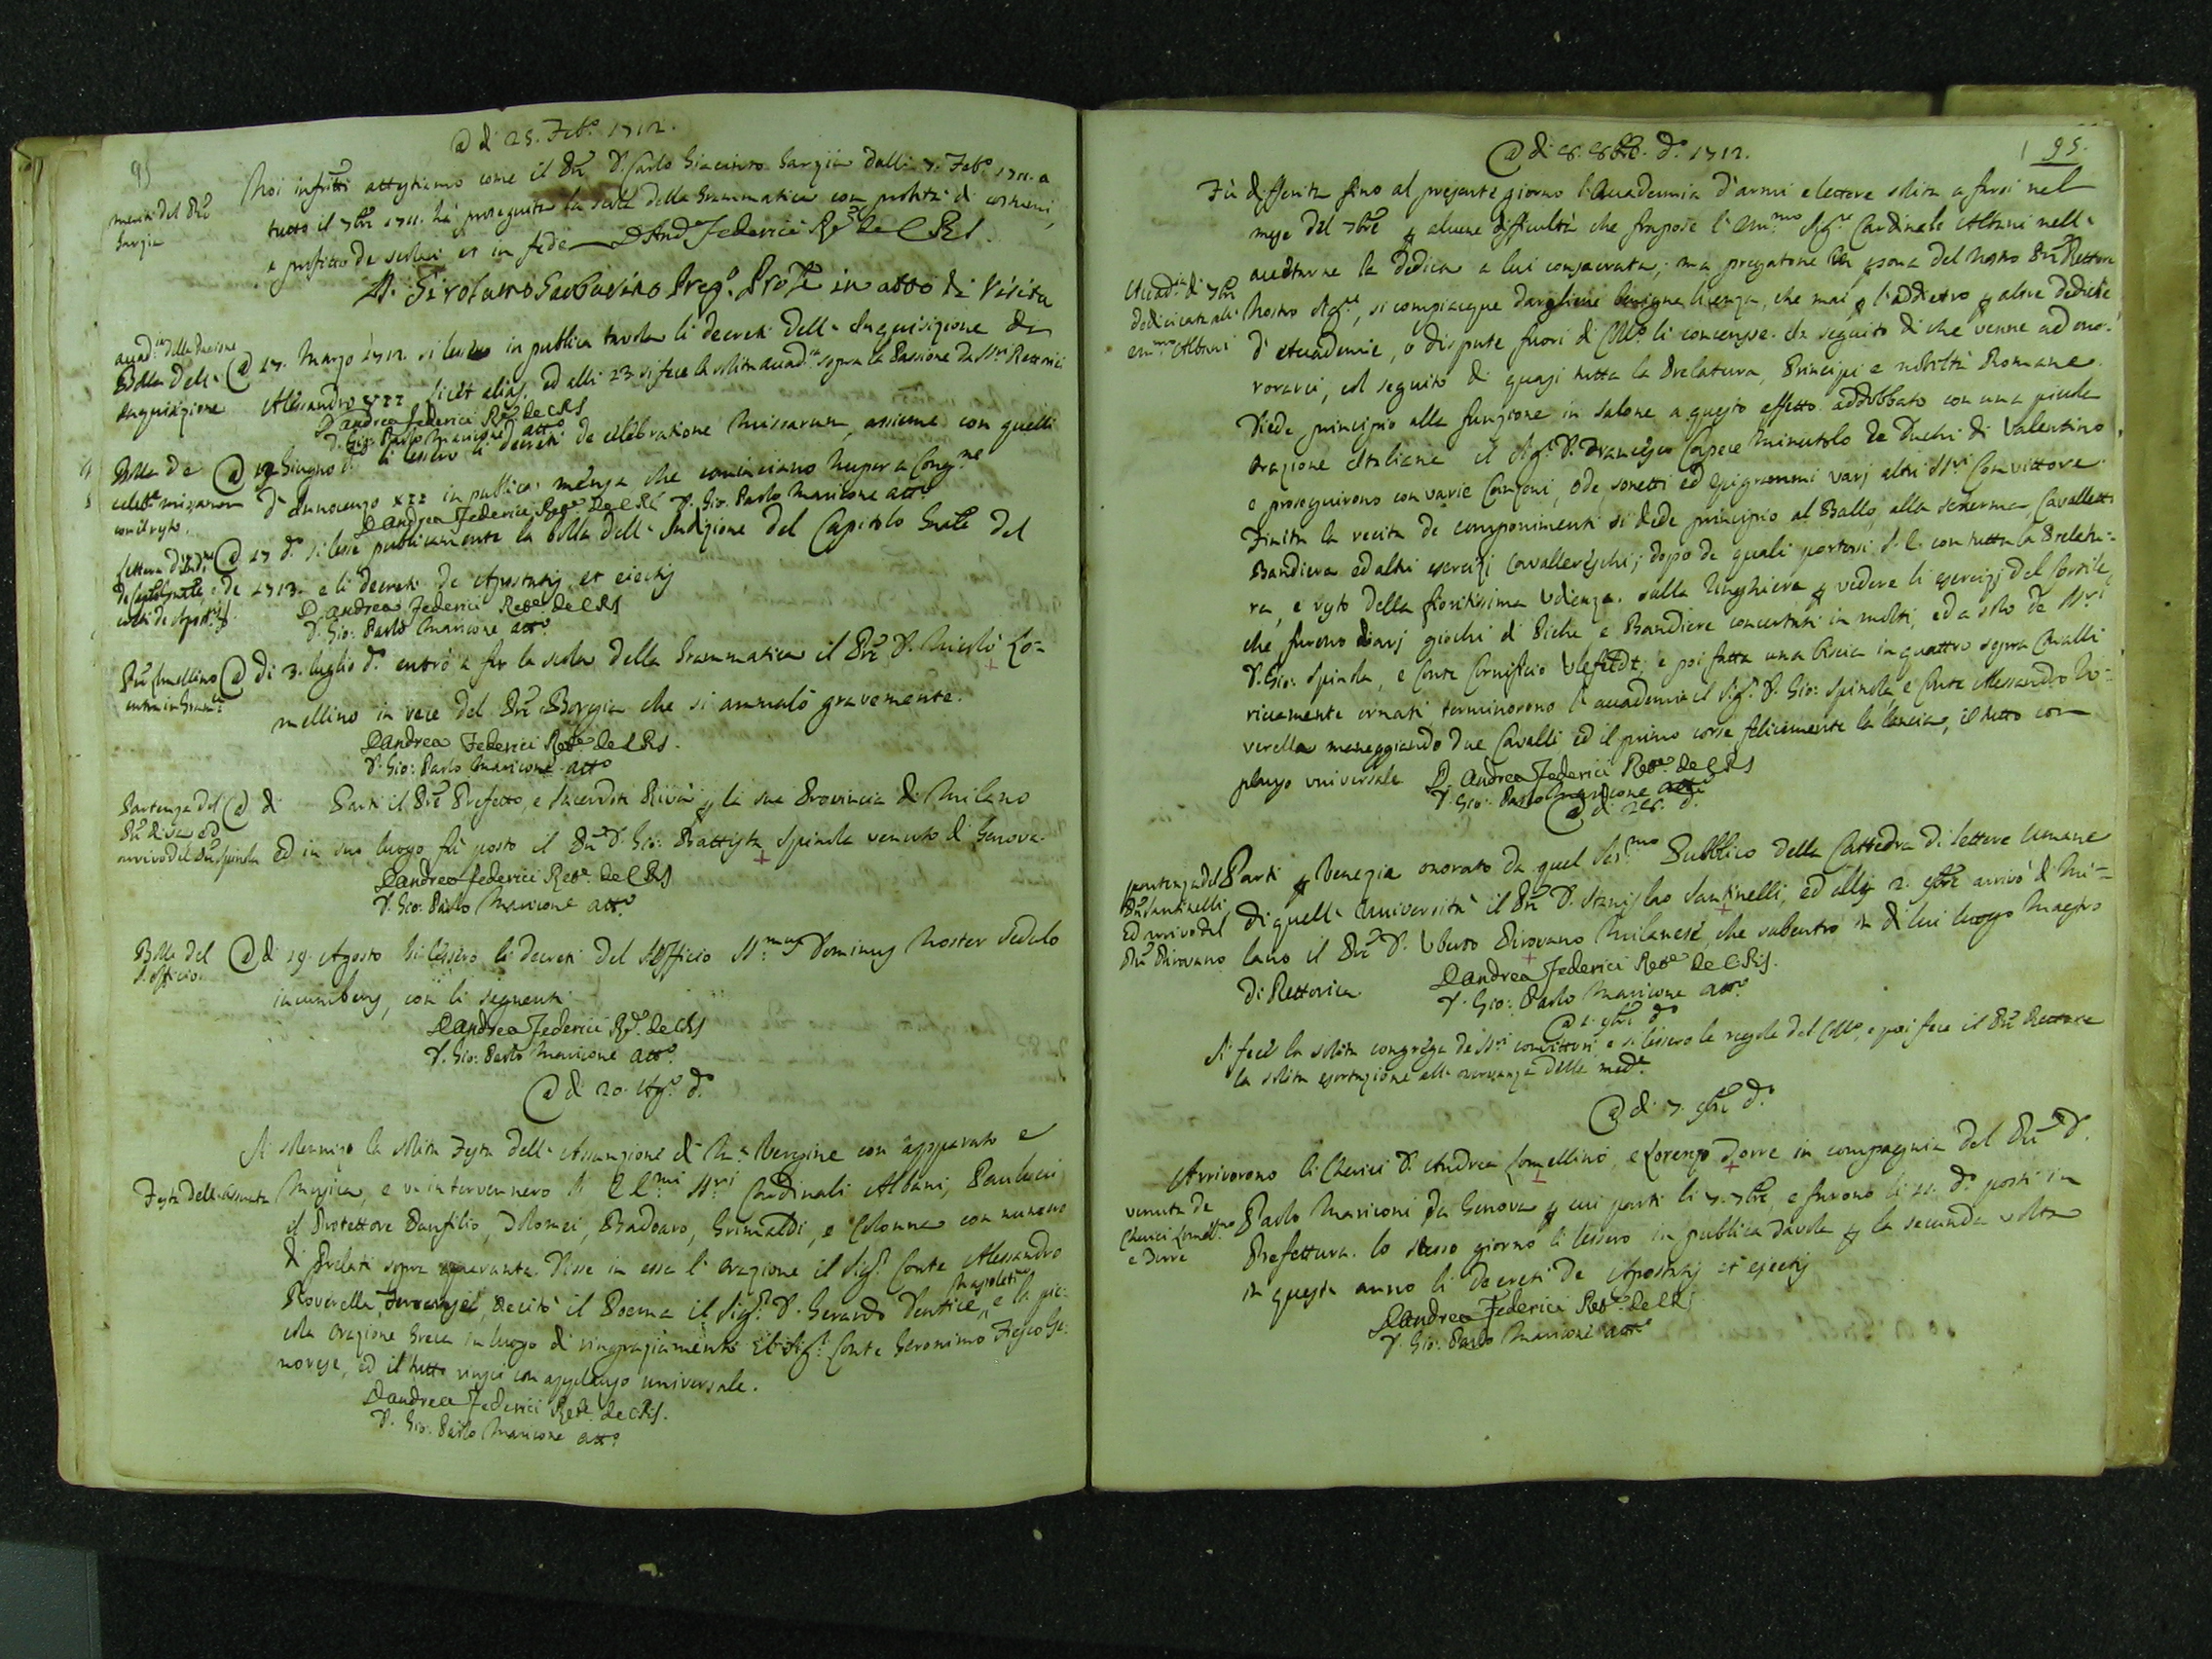 @ di 25. Feb.o 1712.
merito del Pre
Sargia
Noi infritti attestiamo come il Pre D. Carlo Giacinto Sargia dalli 7. Feb.o 1711. a
tutto il 7bre 1711. hà proseguito la scola della Grammatica con probità di costumi,
e profitto de scolari et in fede D And.a Federici Re.re de C R S.
D. Girolamo Prep.o Prole in atto di Visita
accad.ia della Passione
Bolla dell'
Inquisizione
@ 17. Marzo 1712. si lessero in publica tavola li decreti dell' Inquisizione di
Alessandro VII licet alias, ed alli 23. si fece la solita accad.ia sopra la Passione da SSri Rettorici
D Andrea Federici Ret.re de C R S
D. Gio: Paolo Maricone att.o
Bolla de
celeb.e missarum
con il resto.
@ Giugno d.o si lessero li decreti de celebratione Missarum, assieme con quelli
d'Innocenzo XII in publica mensa che cominciano Nuper a Cong.ne
D Andrea Federici Ret.re de C R S D. Gio: Paolo Maricone att.o
Lettera d'Ind.ne
de Capitol. gnãle
e de Apost.
@ 17 d.o si lesse publicamente la bolla dell' Indizione del Capitolo Gnãle del
1713. e li decreti de Apostatis, et eiectis
D Andrea Federici Ret.re de C R S
D. Gio: Paolo Maricone att.o
Pre Lomellino
entra in Gram.ca
@ di 3. luglio d.o entrò a far la scola della Grammatica il Pre D. Nicolò Lo=
mellino in vece del Pre Borgia che si ammalò gravemente.
D Andrea Federici Ret.re de C R S.
D. Gio: Paolo Maricone att.o
Partenza del
Pre Riva ed
arrivo del Pre Spinola
@ di Parti il Pre Prefetto, e Sacerdoti Riva p la sua Provincia di Milano
ed in suo luogo fù posto il Pre D. Gio: Battista Spinola venuto di Genova.
D Andrea Federici Ret.re de C R S
D. Gio: Paolo Maricone att.o
Bolla del
S. Officio.
@ di 19. Agosto si lessero li decreti del S Officio SS.mus Dominus Noster sedulo
incumbens, con li seguenti
D Andrea Federici Ret.re de C R S
D. Gio: Paolo Maricone att.o
@ di 20. Ag.o d.o
Festa dell'Assunta
Si solennizò la solita Festa dell' Assunzione di M.a Vergine con apparato e
Musica, e vi intervennero li E E.mi SSri Cardinali Albani, Paulucci
il Protettore Panfilio, Tolomei, Badoaro, Grimaldi, e Colonna con numero
di Prelati sopra quaranta. Disse in essa l'Orazione il Sig.r Conte Alessandro
Roverella, recitò il Poema il Sig.r D. Gerardo Dentice Napoletano, e la pic=
cola Orazione Greca in luogo di ringraziamento il Sig.r Conte Geronimo Fiesco Ge=
novese, ed il tutto riuscì con applauso universale.
D Andrea Federici Ret.re de C R S.
D. Gio: Paolo Maricone att.o
95.
@ di 8. 8bre. d.o 1712.
Accad.ia di 7bre
dedicata all'
em.mo Albani
Fù differita fino al presente giorno l'Accademia d'armi e lettere solita a farsi nel
mese del 7bre p alcune difficultà che frapose l'Em.mo Sig.re Cardinale Albani nell'
accettarne la dedica a lui consacrata; ma pregatone in psona del Nostro Pre Rettore
Nostro Sig.re, si compiacque dargliene benigna licenza, che mai p l'addietro p altre dediche
d'Accademie, o dispute fuori di Coll.o li concesse. In seguito di che venne ad ono=
rorarci, col seguito di quasi tutta la Prelatura, Principi e nobiltà Romana.
Diede principio alla funzione in salone a questo effetto addobbato con una picciola
Orazione Italiana il Sig.r D. Francesco Capece Minutolo de Duchi di Valentino,
e proseguirono con varie Canzoni, Ode, sonetti ed Epigrammi varj altri SSri Convittori.
Finita la recita de componimenti si dede principio al Ballo, alla scherma, Cavalletti
Bandiera ed altri esercizi Cavallereschi; dopo de quali portossi S. E. con tutta la Prelatu=
ra, e resto della fioritissima Udienza, sulla Ringhiera p vedere li esercizj del Cortile,
che furono varj giochi di Piche e Bandiere concertati in molti, ed a solo de SSri
D. Gio: Spinola, e Conte Cornificio Ulefeldt; e poi fatta una biscia in quattro sopra Cavalli
riccamente ornati, terminorono l'accademia il Sig.r D. Gio: Spinola, e Conte Alessandro Ro=
verella maneggiando due Cavalli ed il primo corse felicemente la lancia, il tutto con
plauso universale D. Andrea Federici Ret.re de C R S
D. Gio: Paolo Maricone att.o
@ di 28. d.o
partenza del
Pre Santinelli
ed arrivo del
Pre Pirovano
Partì p Venezia onorato da quel Ser.mo Pubblico della Cattedra di lettere umane
di quell' Università il Pre D. Stanislao Santinelli, ed alli 2. 9bre arrivò di Mi=
lano il Pre D. Uberto Pirovano Milanese, che subentrò in di lui luogo Maestro
di Rettorica D Andrea Federici Ret.re de C R S.
D. Gio: Paolo Maricone att.o
@ 1. 9bre d.o
Si fece la solita congrega de SSri convittori, e si lessero le regole del Coll.o, e poi fece il Pre Rettore
la solita esortazione all' osservanza delle med.e
@ di 7. 9bre d.o
venuta de
Cherici Lomell.no
e Torre
Arrivorono li Cherici D. Andrea Lomellino, e Lorenzo Torre in compagnia del Pre D.
Paolo Mariconi da Genova p cui partì li 7. 7bre, e furono li 11. d.o posti in
Prefettura. lo stesso giorno si lessero in publica tavola p la seconda volta
in questo anno li decreti de Apostatis et ejectis
D Andrea Federici Ret.re de C R S
D. Gio: Paolo Mariconi att.o